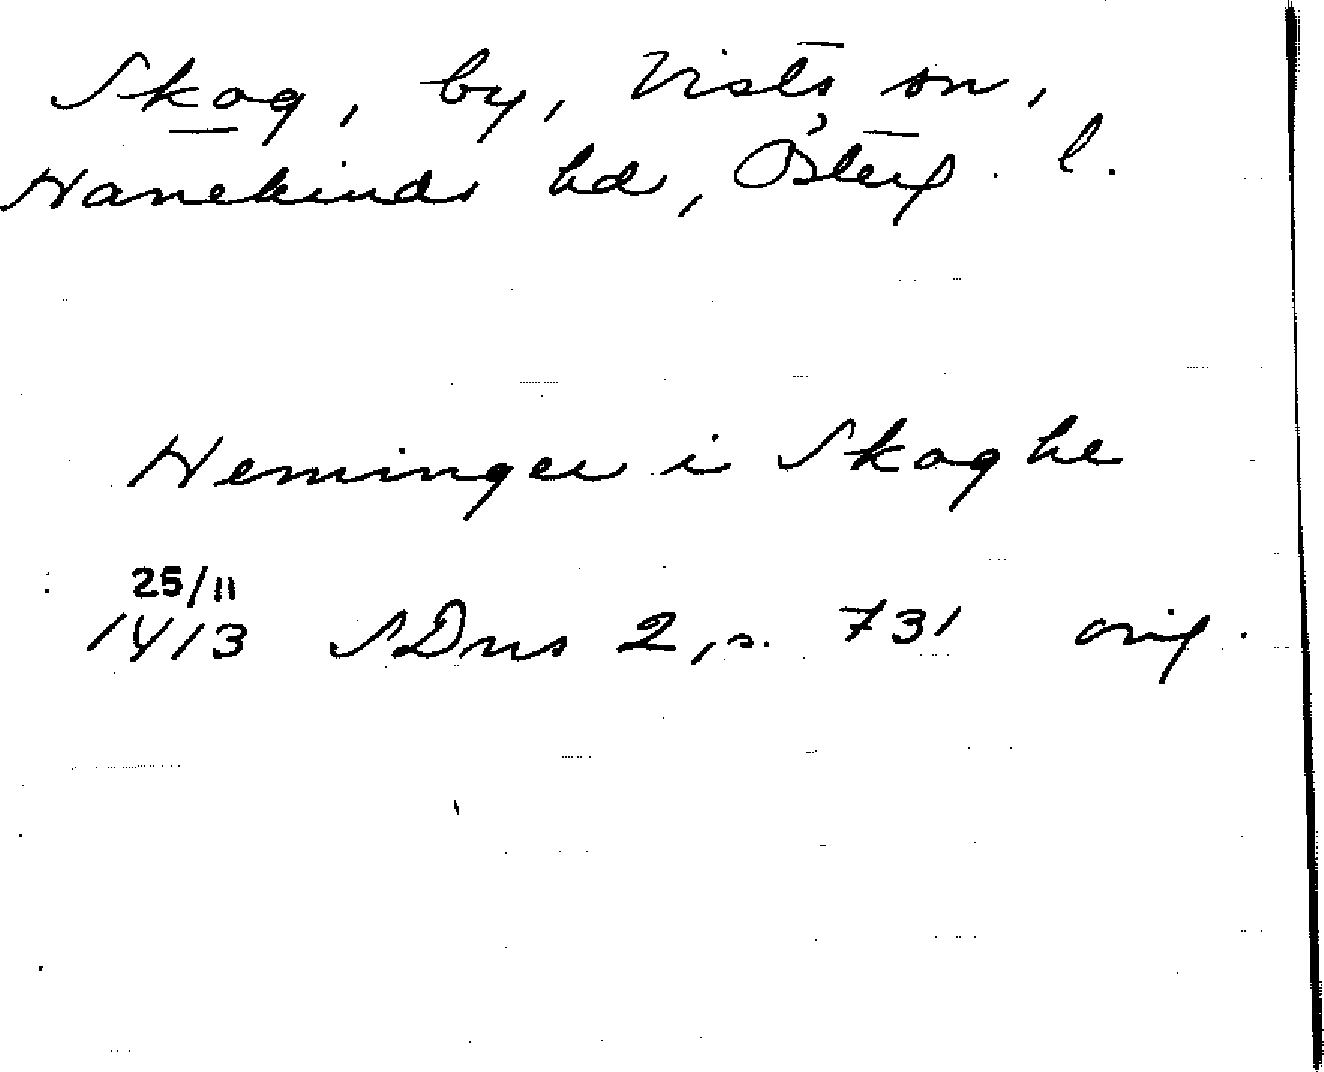 Skog, by, Vists sn,
Hanekinds hd, Österg. l.
Heminger i Skoghe
25/11
1413 SDns 2, s. 731 orig.